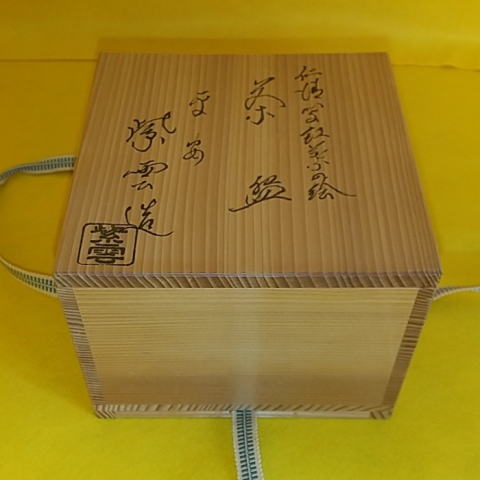 仁清写紅葉の絵
茶盌
平安
紫雲造
紫雲